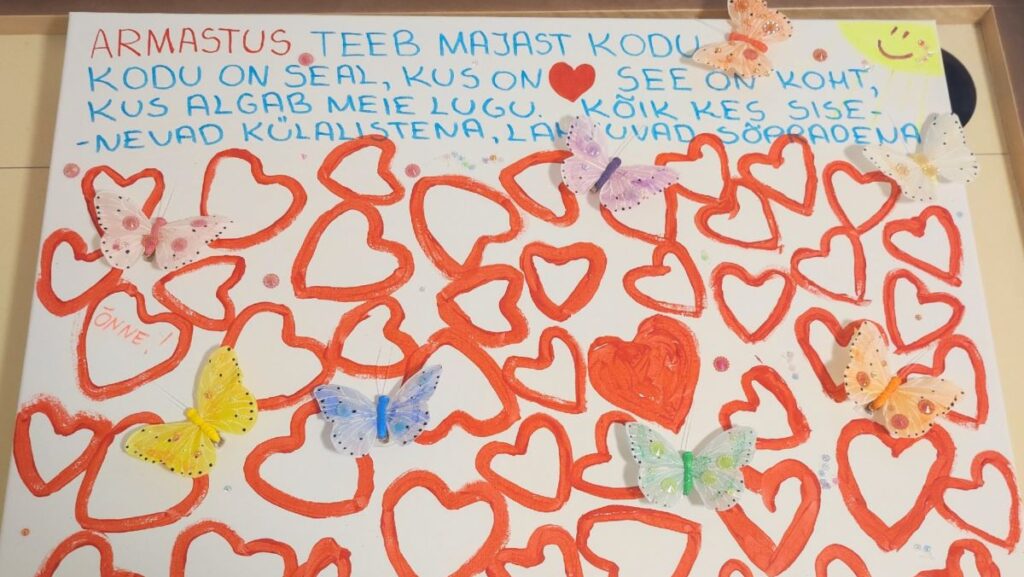 ARMASTUS TEEB MAJAST KODU
KODU ON SEAL, KUS ON SEE ON KOHT,
KUS ALGAB MEIE LUGU. KÕIK KES SISE-
-NEVAD KÜLALISTENA, SÕPRADENA
ÕNNE!